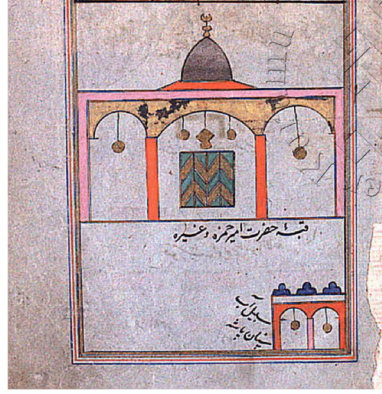 قبهٔ حضرت امیر حمزه و غیره
سبیل آب
سنان پاشا